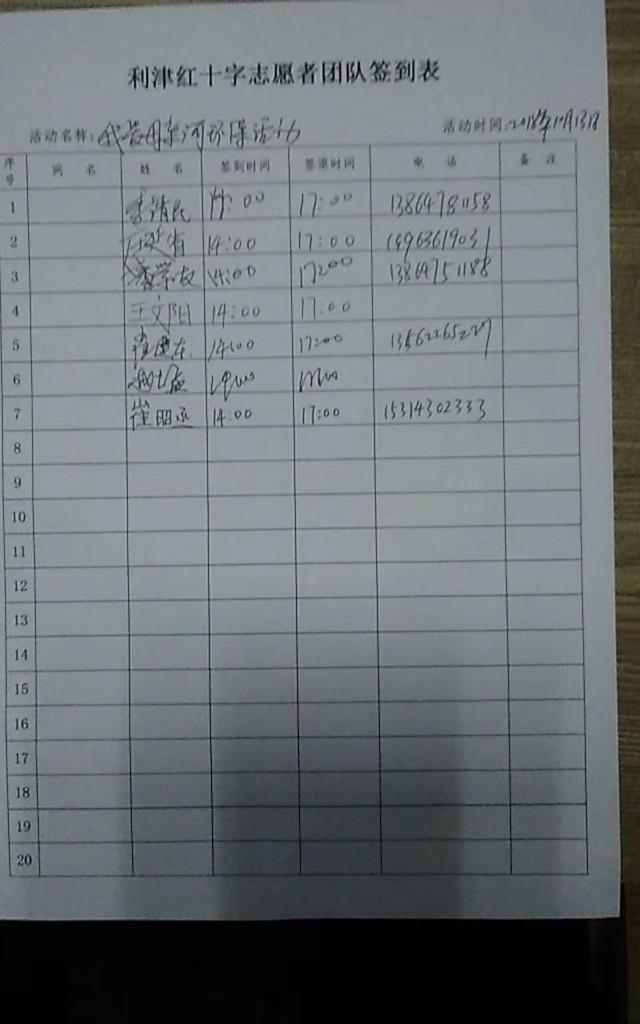 利津红十字志愿者团队签到表
活动名称：我爱母亲河环保活动 活动时间：2018年10月13日
序号 网 名 姓 名 签到时间 签退时间 电 话 备 注
1 李清民 14:00 17:00 13864781158
2 14:00 17:00
3 14:00 17:00 13864751188
4 王文阳 14:00 17:00
5 崔建东 14:00 17:00
6
7 崔昭亟 14:00 17:00 15314302333
8
9
10
11
12
13
14
15
16
17
18
19
20